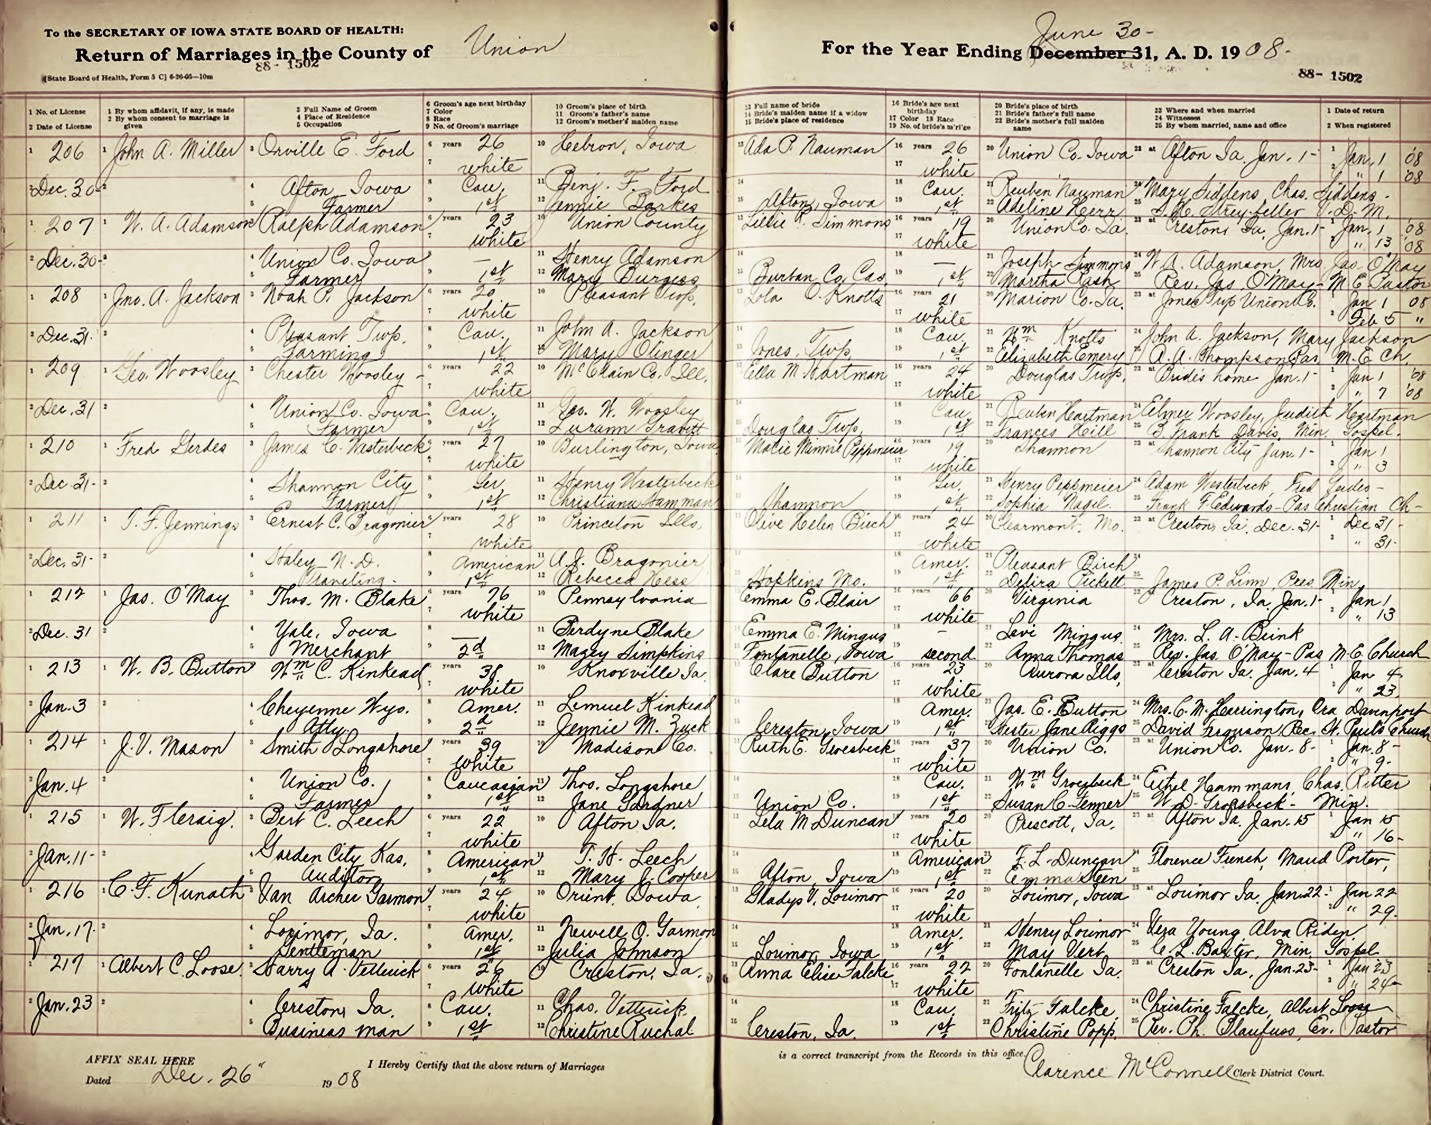 To the SECRETARY OF IOWA STATE BOARD OF HEALTH:
Return of Marriages in the County of Union
88- 1502
(State Board of Health, Form 5 C) 6-26-05—10m
June 30-
For the Year Ending December 31, A. D. 1908-
88- 1502
1 No. of License
2 Date of License
1 By whom affidavit, if any, is made
2 By whom consent to marriage is given
3 Full Name of Groom
4 Place of Residence
5 Occupation
6 Groom's age next birthday
7 Color
8 Race
9 No. of Groom's marriage
10 Groom's place of birth
11 Groom's father's name
12 Groom's mother's maiden name
13 Full name of bride
14 Bride's maiden name if a widow
15 Bride's place of residence
16 Bride's age next birthday
17 Color 18 Race
19 No. of bride's m'ri'ge
20 Bride's place of birth
21 Bride's father's full name
22 Bride's mother's full maiden name
23 Where and when married
24 Witnesses
25 By whom married, name and office
1 Date of return
2 When registered
206 John A. Miller Orville E. Ford 26 Hebron, Iowa Ada P. Nauman 26 Union Co. Iowa Afton Ia, Jan. 1- Jan. 1 '08
white white " 1 '08
Dec. 30- Afton Iowa Cau. Benj. F. Ford Cau. Reuben Nauman Mary Siddens Chas. Siddens-
Farmer 1st Jennie Parkes Afton, Iowa 1st Adeline Kerr V. D. M.
207 W. A. Adamson Ralph Adamson 23 Union County Lillie P. Simmons 19 Union Co. Ia. Creston, Ia, Jan. 1- Jan. 1 '08
white white " 13 '08
Dec. 30- Union Co. Iowa — Henry Adamson — Joseph Simmons W. A. Adamson, Mrs Jas. O'May
Farmer 1st Mary Burgess 1st Martha Rev. Jas. O'May- M E Pastor
208 Jno. A. Jackson Noah P. Jackson 20 Pleasant Twp. Lola O. Knotts 21 Marion Co. Ia. Jones Twp Union Co. Jan 1 08
white white Feb 5 "
Dec. 31- Pleasant Twp. Cau. John A. Jackson Cau. Wm Knotts John A. Jackson, Mary Jackson
Farming 1st Mary Olinger Jones Twp 1st Elizabeth Emery A. A. Thompson Pas M. E. Ch,
209 Geo. Woosley Chester Woosley- 22 McClain Co. Ill. Ella M. Hartman 24 Douglas Twp. Bride's home Jan. 1- Jan 1 '08
white white " 7 '08
Dec. 31 Union Co. Iowa Cau. Geo. W. Woosley Cau. Reuben Hartman Elmer Woosley, Judith Hartman
Farmer 1st Lurann Gravitt Douglas Twp. 1st Frances Hill B. Frank Davis, Min. Gospel.
210 Fred Gerdes James C. Westerbeck 27 Burlington, Iowa Macie Minnie Peppmeier 19 Shannon Shannon City Jan. 1- Jan 1
white white " 3
Dec 31- Shannon City Ger. Henry Westerbeck Ger. Henry Pepsmeier Adam Westerbeck Fred Gerdes-
Farmer 1st Christiana Hamman Shannon 1st Sophia Nagel. Frank F. Edwards- Pas Christian Ch-
211 T. F. Jennings Ernest C. Bragonier 28 Princeton Ills, Olive Helen Birch 24 Clearmont, Mo. Creston, Ia. Dec. 31- Dec 31-
white white " 31.
Dec. 31- Haley- N. D. American A. J. Bragonier Amer. Pleasant Birch
Traveling. 1st Rebecca Ness Hopkins Mo. 1st Defira Pickett James P. Linn Pres Min
212 Jas. O'May Thos. M. Blake 76 Pennsylvania Emma E. Blair 66 Virginia Creston, Ia, Jan. 1- Jan 1
white white " 13
Dec. 31 Yale, Iowa — Perdyne Blake Emma E. Mingus - Levi Mingus Mrs. L. A. Brink
Merchant 2d Macey Simpkins Fontanelle, Iowa second Anna Thomas Rev. Jas. O'May- Pas M. E. Church
213 W. B. Button Wm C. Kinkead 38 Knoxville Ia. Clare Button 23 Aurora Ills, Creston Ia. Jan. 4 Jan 4
white white " 23
Jan. 3 Cheyenne Wyo. Amer. Lemuel Kinkead Amer. Jas. E. Button Mrs. C. M. Harrington, Ora Davenport
Atty. 2d Jennie M. Zuck Creston, Iowa 1st Hester Jane Riggs David Ferguson Rec. St. Paul's Church
214 J. V. Mason Smith Longshore 39 Madison Co. Ruth E. Groesbeck 37 Union Co. Union Co. Jan. 8- Jan. 8-
white white " 9-
Jan. 4 Union Co. Caucasian Thos. Longshore Cau. Wm Groesbeck Ethel Hammans, Chas. Ritter
Farmer 1st Jane Gardner Union Co. 1st Susan C. Fenner W. D. Groesbeck- Min.
215 W. F. Craig. Bert C. Leech 22 Afton Ia. Lela M Duncan 20 Prescott, Ia. Afton Ia. Jan. 15 Jan 15
white white " 16-
Jan. 11- Garden City Kas. American T. H. Leech American F. L. Duncan Florence French, Maud Porter,
Auditor 1st Mary J. Cooper Afton, Iowa 1st Emma Steen
216 C. F. Kunath Van Archer Garmon 24 Orient, Iowa, Gladys V. Lorimor 20 Lorimor, Iowa Lorimor Ia, Jan 22- Jan 22
white white " 29.
Jan. 17- Lorimor, Ia. Amer. Newell O. Garmon Amer. Henry Lorimor Vera Young Alva Riden
Gentleman 1st Julia Johnson Lorimor, Iowa 1st May Vert C. L. Baxter, Min. Gospel
217 Albert C. Loose Harry A. Vetterick 26 Creston, Ia. Anna Elise Falcke 22 Fontanelle Ia. Creston Ia, Jan 23- Jan 23
white white " 24-
Jan. 23 Creston, Ia. Cau. Chas. Vetterick Cau. Fritz Falcke Christine Falcke, Albert Loose
Business man 1st Christine Ruchal Creston, Ia. 1st Christine Popp. Rev. Ph. Blaufuss, Ev. Pastor
AFFIX SEAL HERE
Dated Dec. 26" 1908
I Hereby Certify that the above return of Marriages
is a correct transcript from the Records in this office.
Clarence McConnell Clerk District Court.